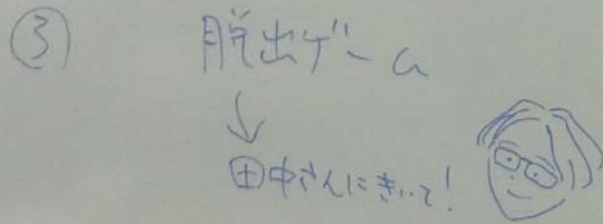 ③ 脱出ゲーム
↓
田中さんにきいて!